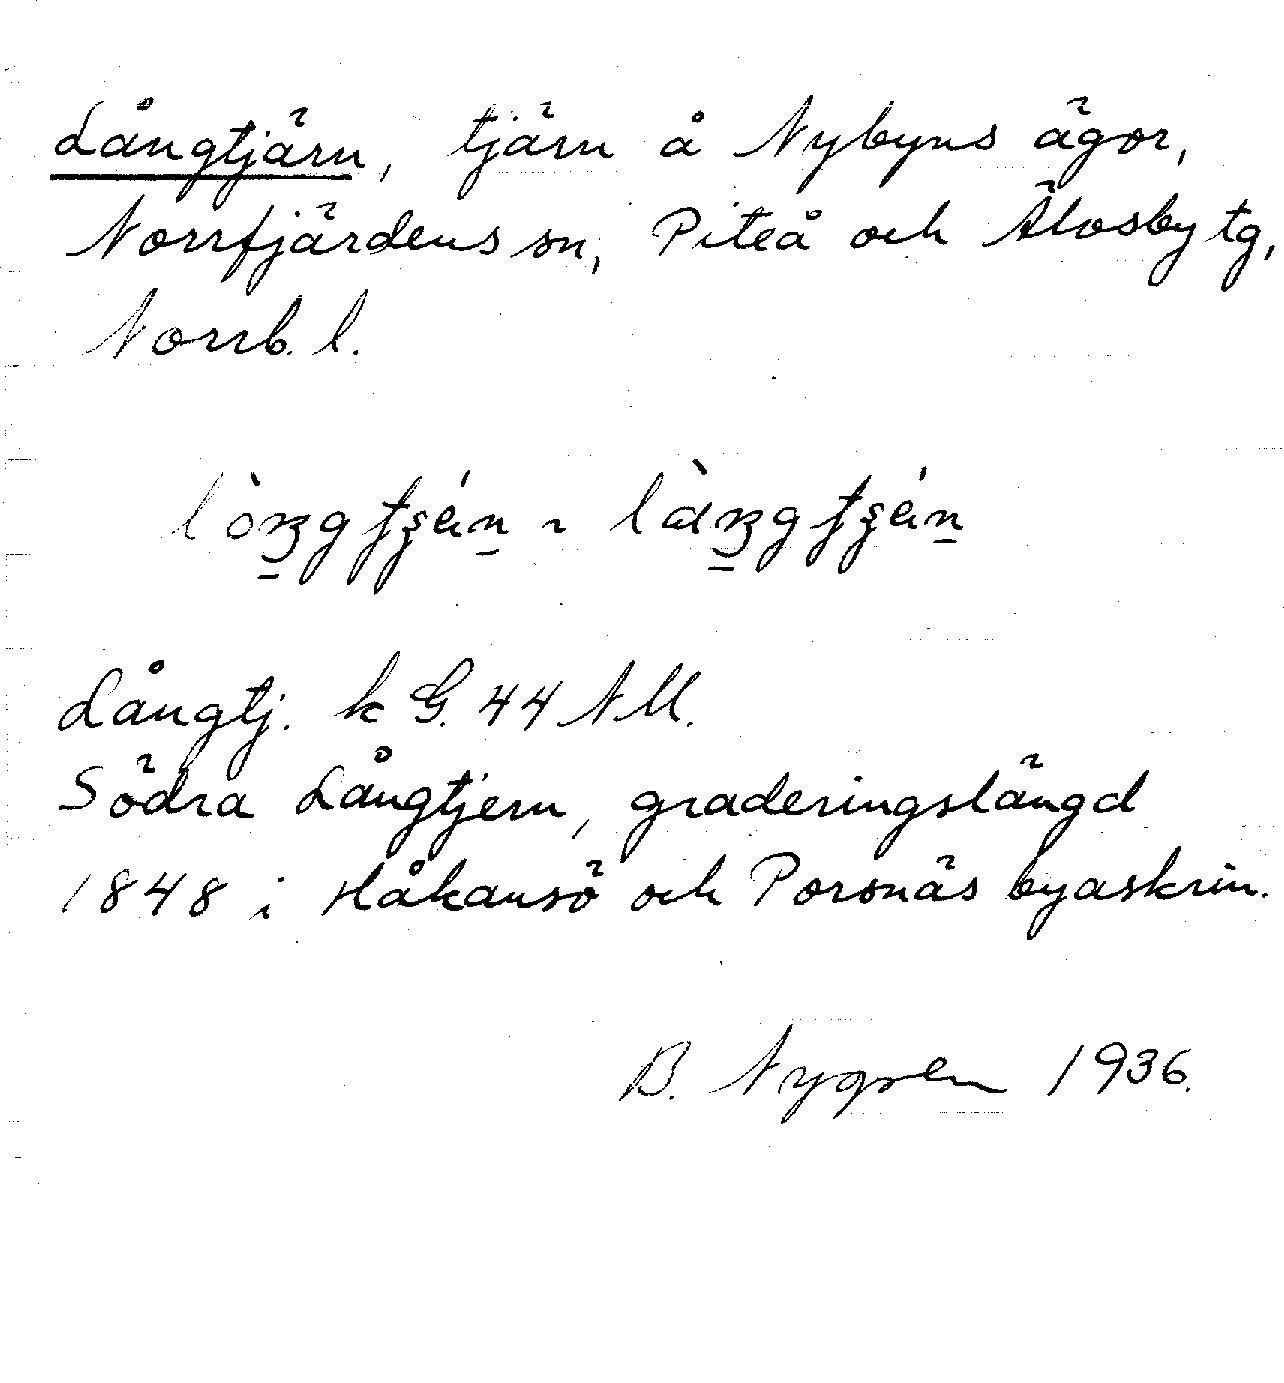 Långtjärn, tjärn å Nybyns ägor,
Norrfjärdens sn, Piteå och Älvsby tg,
Norrb. l.
Långtj. k G. 44 NM.
Södra Långtjern, graderingslängd
1848 i Håkansö och Porsnäs byaskrin.
B. Nygren 1936.